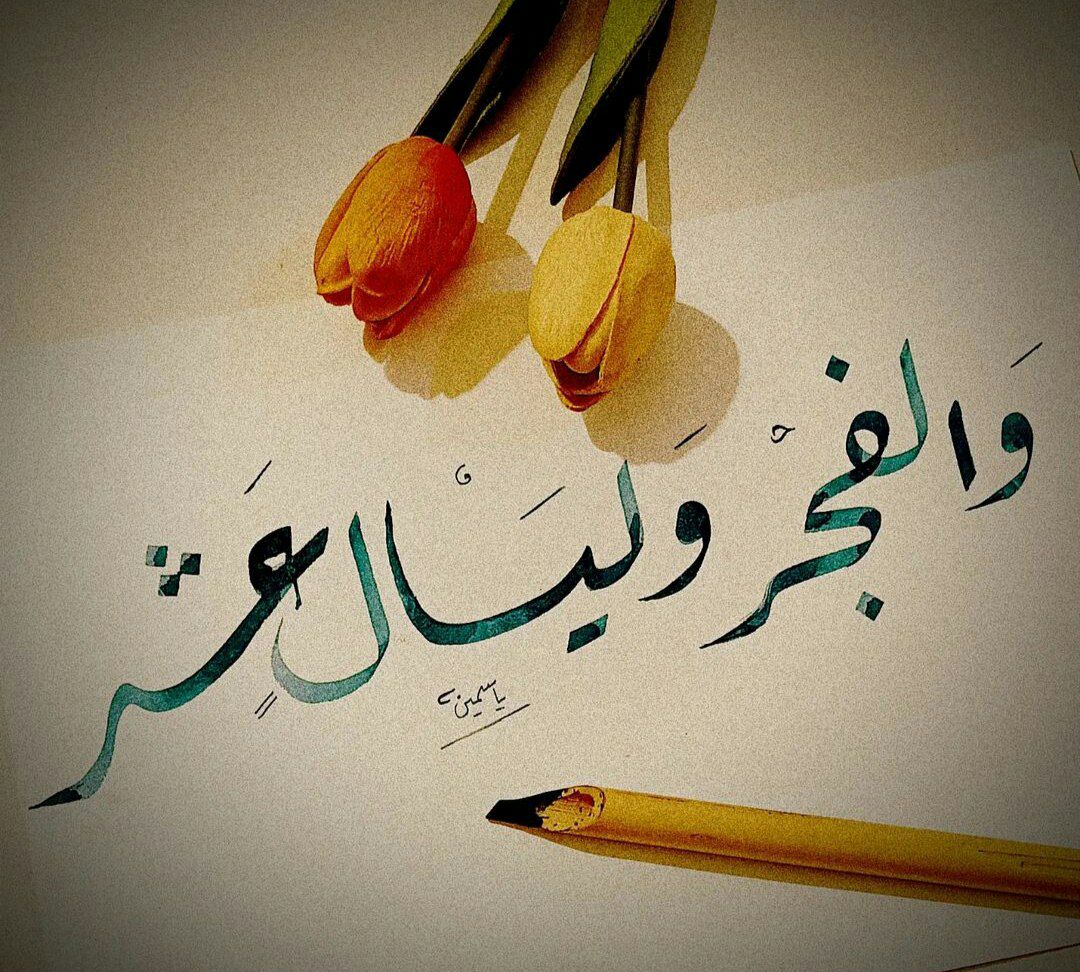 وَالفجْر وَليَالٍ عَشر
ياسمين